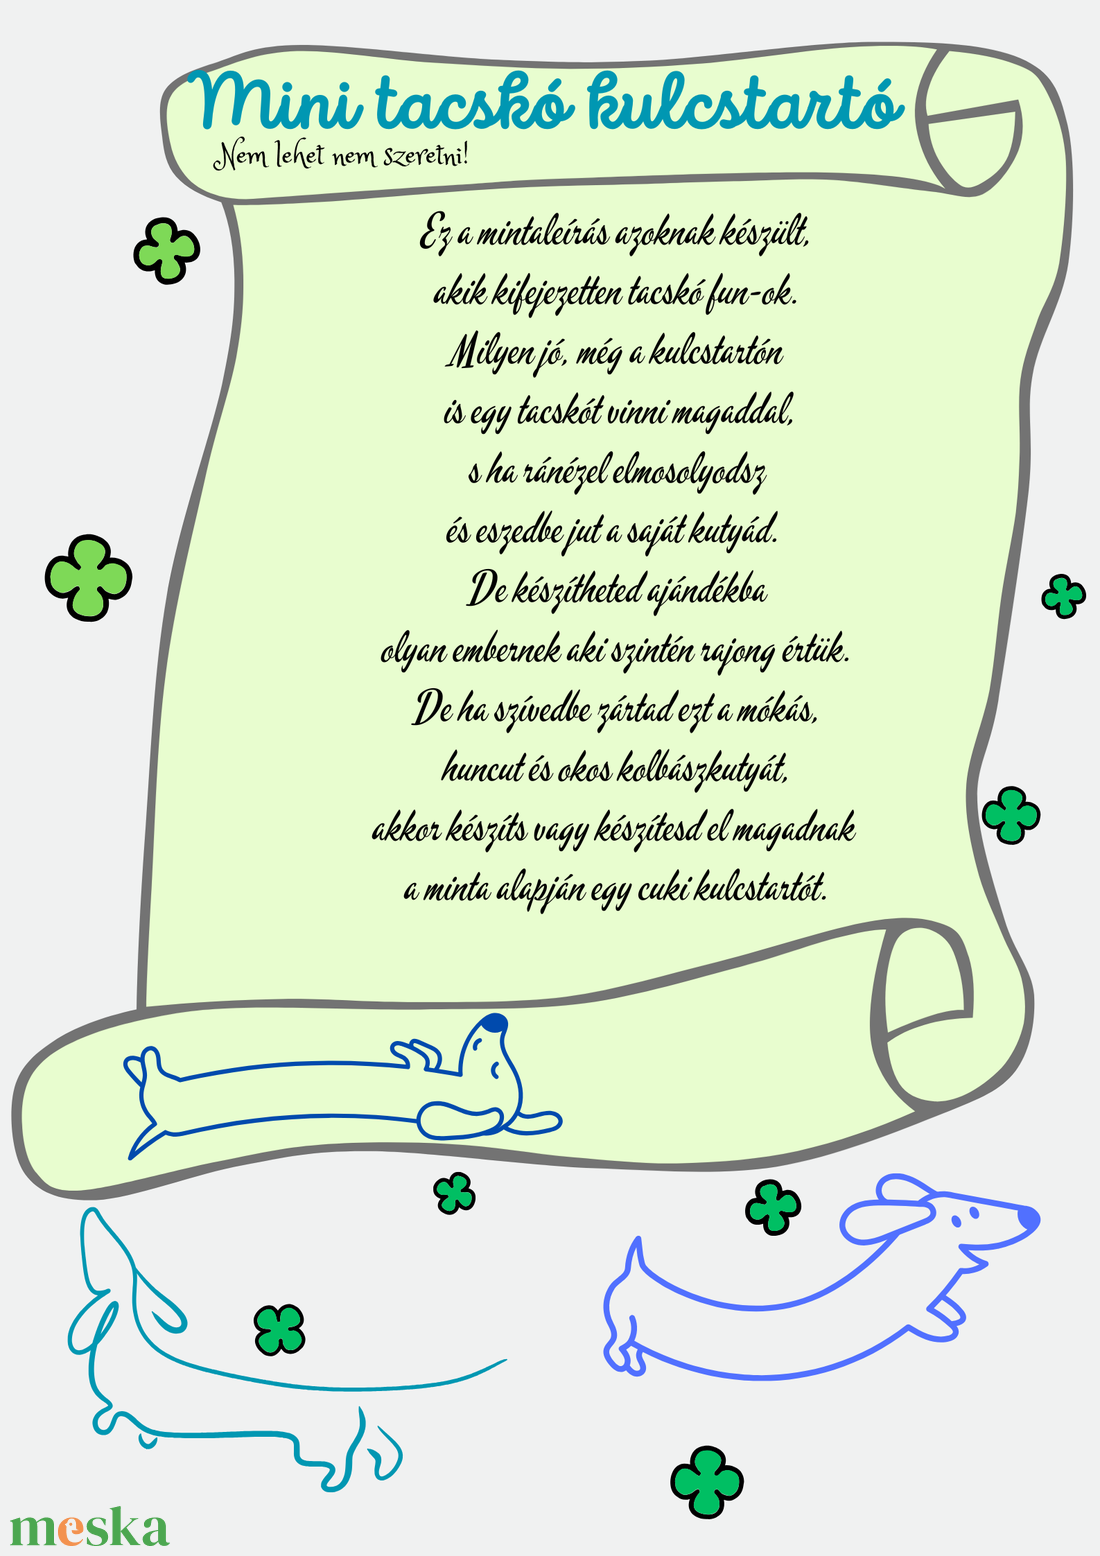 Mini tacskó kulcstartó
Nem lehet nem szeretni!
Ez a mintaleírás azoknak készült,
akik kifejezetten tacskó fun-ok.
Milyen jó, még a kulcstartón
is egy tacskót vinni magaddal,
s ha ránézel elmosolyodsz
és eszedbe jut a saját kutyád.
De készítheted ajándékba
olyan embernek aki szintén rajong értük.
De ha szívedbe zártad ezt a mókás,
huncut és okos kolbászkutyát,
akkor készíts vagy készítesd el magadnak
a minta alapján egy cuki kulcstartót.
meska